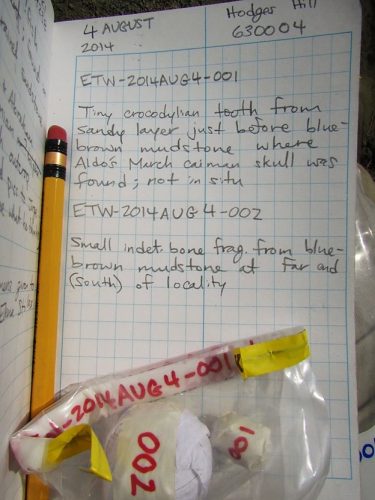 4 AUGUST
2014
Hodges Hill
630004
ETW-2014AUG4-001
Tiny crocodylian tooth from
sandy layer just before blue-
brown mudstone where
Aldo's March caiman skull was
found; not in situ
ETW-2014AUG4-002
Small indet. bone frag. from blue-
brown mudstone at far end
(south) of locality
-2014AUG4-001
002
001